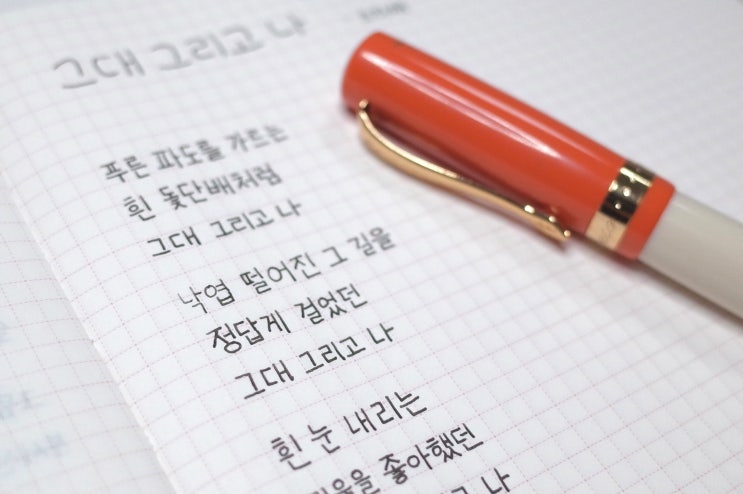 그대 그리고 나
푸른 파도를 가르는
흰 돛단배처럼
그대 그리고 나
낙엽 떨어진 그 길을
정답게 걸었던
그대 그리고 나
흰 눈 내리는
좋아했던
나